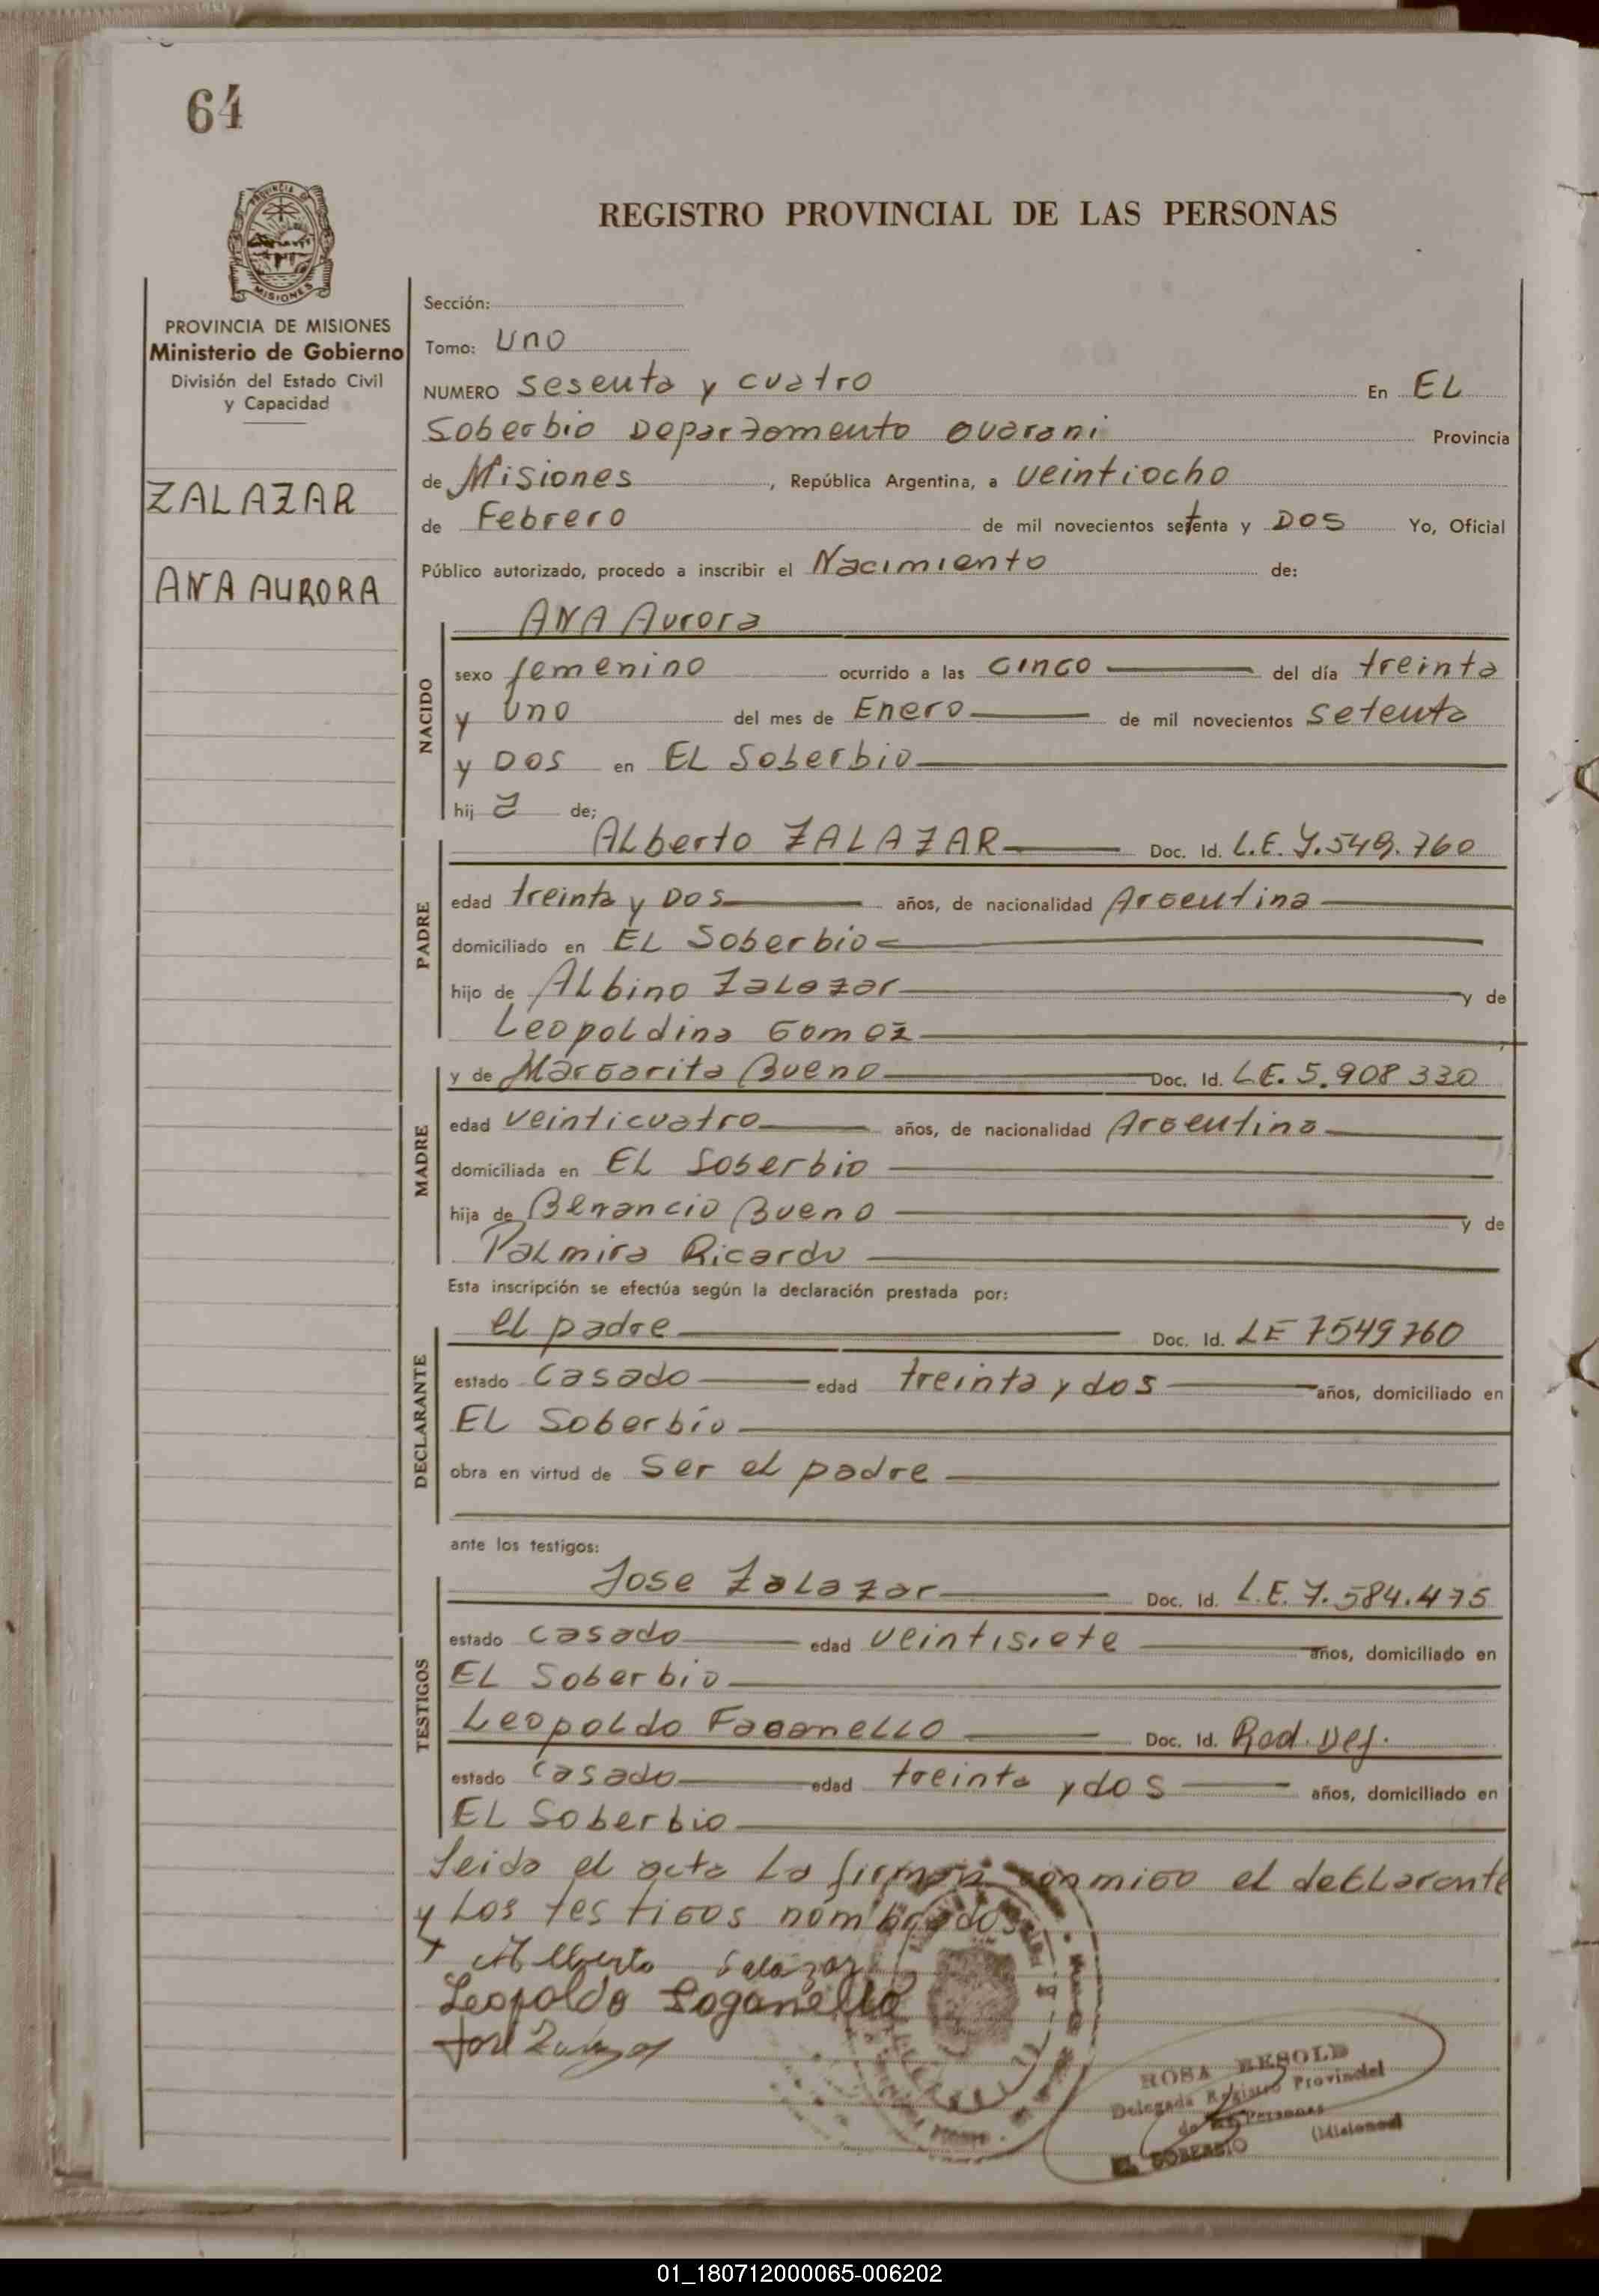 64
PROVINCIA DE
MISIONES
REGISTRO PROVINCIAL DE LAS PERSONAS
PROVINCIA DE MISIONES
Ministerio de Gobierno
División del Estado Civil
y Capacidad
ZALAZAR
ANA AURORA
Sección:
Tomo: Uno
NUMERO Sesenta y cuatro En EL
Soberbio Departamento Guarani Provincia
de Misiones, República Argentina, a veintiocho
de Febrero de mil novecientos setenta y DOS Yo, Oficial
Público autorizado, procedo a inscribir el Nacimiento de:
ANA Aurora
NACIDO
sexo femenino ocurrido a las cinco del día treinta
y Uno del mes de Enero de mil novecientos setenta
y DOS en EL Soberbio
hij a de;
PADRE
ALberto ZALAZAR Doc. Id. L.E. 7.549.760
edad treinta y DOS años, de nacionalidad Argentina
domiciliado en EL Soberbio
hijo de ALbino Zalazar y de
Leopoldina Gomez
MADRE
y de Margarita Bueno Doc. Id. LE. 5.908 330
edad veinticuatro años, de nacionalidad Argentina
domiciliada en EL Soberbio
hija de Benancio Bueno y de
Palmira Ricardo
Esta inscripción se efectúa según la declaración prestada por:
DECLARANTE
el padre Doc. Id. LE 7549760
estado Casado edad treinta y dos años, domiciliado en
EL Soberbio
obra en virtud de Ser el padre
ante los testigos:
TESTIGOS
Jose Zalazar Doc. Id. L.E. 7.584.475
estado casado edad veintisiete años, domiciliado en
EL Soberbio
Leopoldo Faganello Doc. Id. Rad. Def.
estado casado edad treinta y dos años, domiciliado en
EL Soberbio
Leida el acta la firman conmigo el declarante
y Los testigos nombrados
Alberto Salazar
Leopoldo Faganello
José
ROSA BESOLD
Delegada Registro Provincial
de las Personas
EL SOBERBIO (Misiones)
01_180712000065-006202